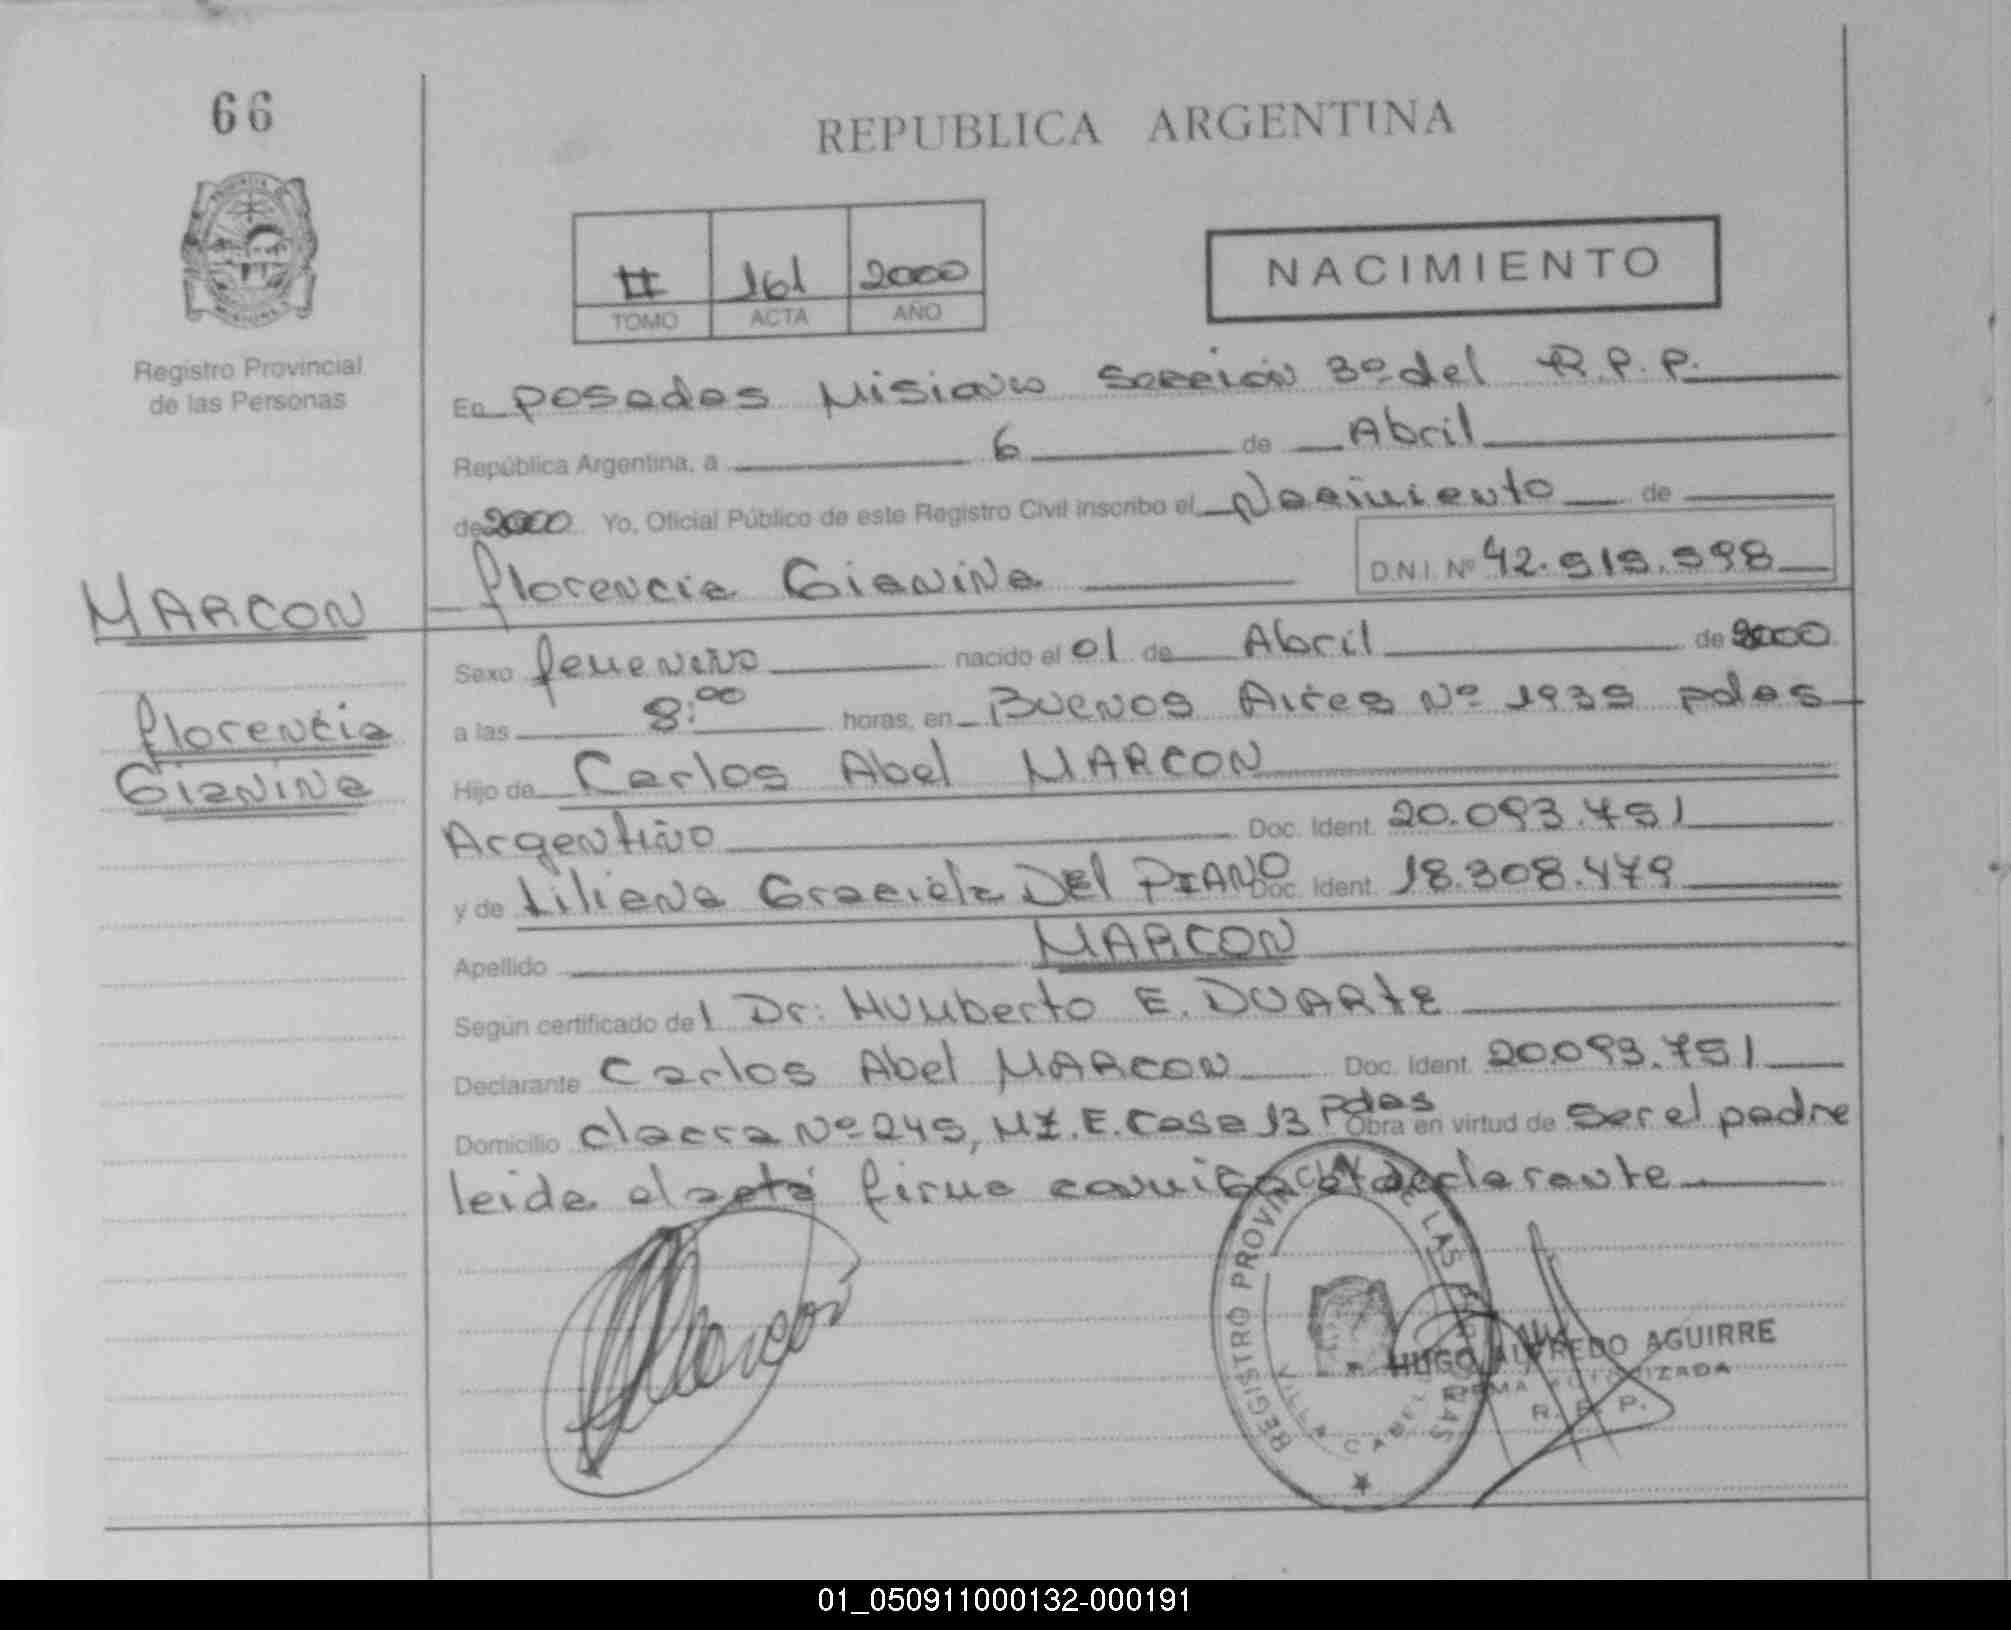 66
REPUBLICA ARGENTINA
II 161 2000
TOMO ACTA AÑO
NACIMIENTO
Registro Provincial
de las Personas
En Posadas Misiones Sección 3º del R.P.P.
República Argentina, a 6 de Abril
de 2000 Yo, Oficial Público de este Registro Civil inscribo el Nacimiento de
Florencia Gianina D.N.I. Nº 42.519.598
MARCON
Florencia
Gianina
Sexo femenino nacido el 01 de Abril de 2000
a las 8:00 horas, en Buenos Aires Nº 1935 pdas
Hijo de Carlos Abel MARCON
Argentino Doc. Ident. 20.093.751
y de Liliana Graciela DEL PIANO Doc. Ident. 18.308.479
Apellido MARCON
Según certificado del Dr: Humberto E. DUARTE
Declarante Carlos Abel MARCON Doc. Ident. 20.093.751
Domicilio chacra Nº 245, MZ. E. Casa 13 Pdas Obra en virtud de ser el padre
leida el acta firma conmigo el declarante
Marcon
REGISTRO PROVINCIAL DE LAS PERSONAS
VILLA CABELLO
HUGO ALFREDO AGUIRRE
FIRMA AUTORIZADA
R. P. P.
01_050911000132-000191